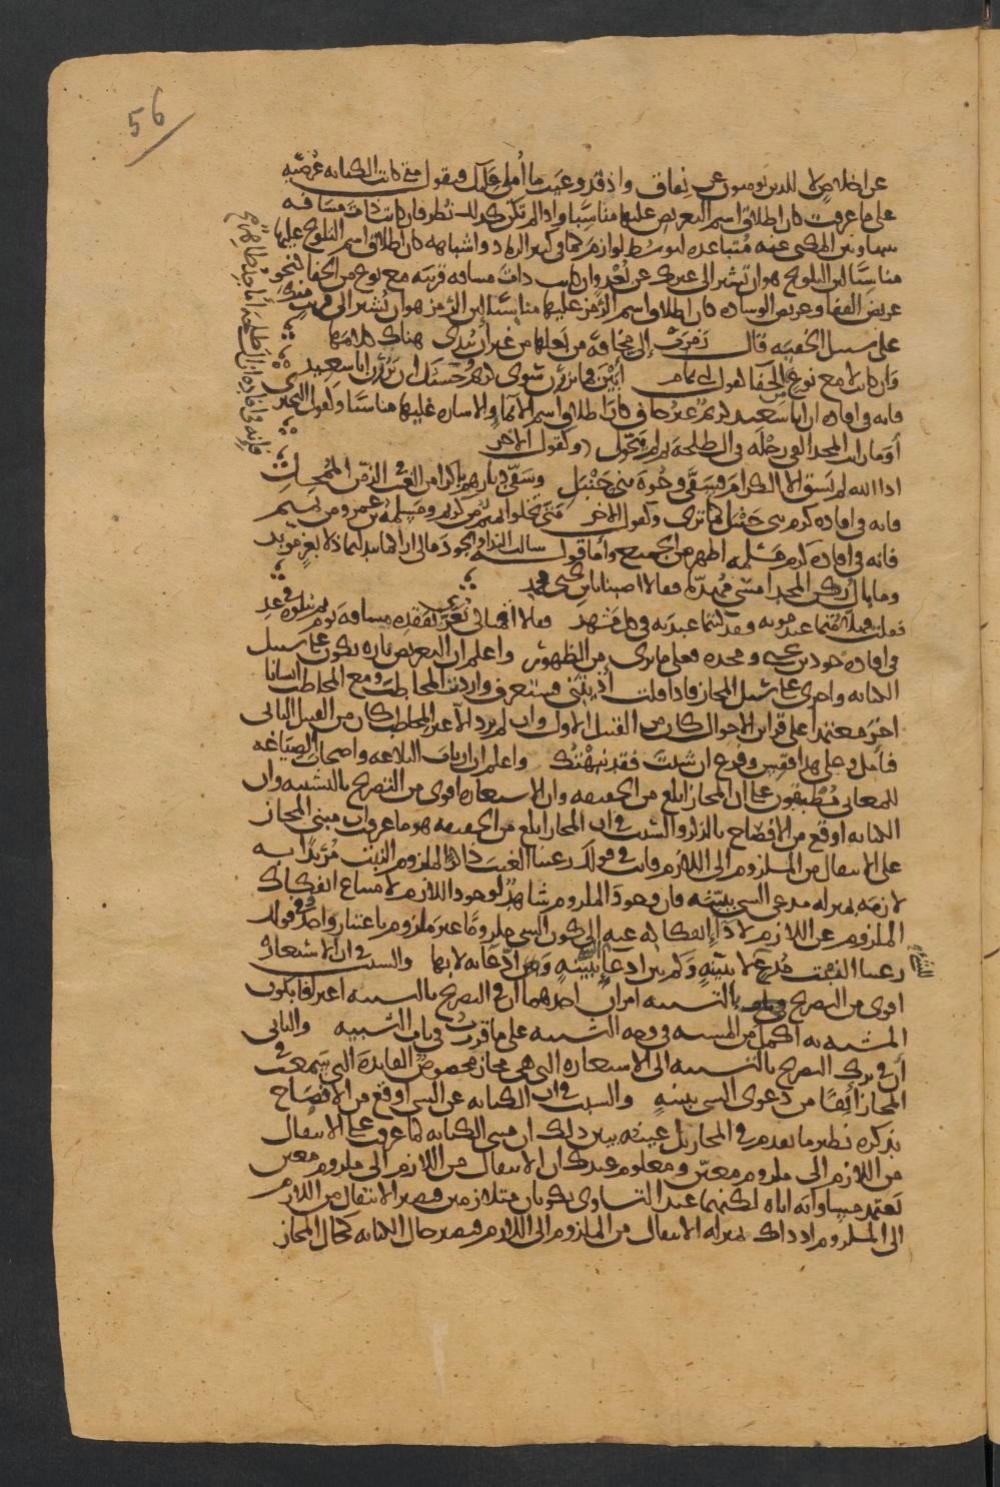 56
عن اخلاص لا للذين يؤمنون عن نفاق واذ قد وعيت ما أملي عليك فنقول متى كانت الكناية عرضية
على ما عرفت كان اطلاق اسم التعريض عليها مناسبا واذا لم تكن كذلك نظر فان كانت ذات مسافة
بينها وبين المكنى عنه متباعدة لتوسط لوازم كما في كثير الرماد واشباهه كان اطلاق اسم التلويح عليها
مناسبا لان التلويح هو ان تشير الى غيرك عن بعد وان كانت ذات مسافة قريبة مع نوع من الخفا كنحو
عريض القفا وعريض الوساده كان اطلاق اسم الرمز عليها مناسبا لان الرمز هو ان تشير الى قريب منك
على سبيل الخفية قال رمزت إلي مخافة من بعلها من غير أن تبدى هناك كلامها
وان كانت لا مع نوع الخفا كقول ابى تمام أبين فما يزرن سوى كريم وحسبك ان يزرن ابا سعيد
فانه في افادة ان ابا سعيد كريم غير خاف كان اطلاق اسم الايما والاشاره عليها مناسبا وكقول البحترى
أوما رايت المجد القى رحله فى ال طلحة ثم لم يتحول وكقول الاخر
اذا الله لم يسق الا الكرام فسقى وجوه بنى حنبل وسقى ديارهم باكرا من الغيث فى الزمن الممحل
فانه في افادة كرم بنى حنبل كما ترى وكقول الاخر متى تخلو تميم من كريم ومسلمة بن عمرو من تميم
فانه في افادة كرم مسلمة اظهر من الجميع وأما قوله سالت الندا والجود مالى اراكما تبدلتما ذلا بعز مويد
وما بال ركن المجد امسى مهدما فقالا اصبنا بابن يحيى محمد
فقلت فهلا متما عند موته وقد كنتما عبديه فى كل مشهد فقالا اقمنا كى نعزى بفقده مسافة يوم ثم نتلوه فى غد
فى افادة جود بن يحيى ومجده فعلى ما ترى من الظهور واعلم ان التعريض تارة يكون على سبيل
الكناية واخرى على سبيل المجاز فاذا قلت آذيتنى فستعرف واردت المخاطب ومع المخاطب انسانا
اخر معتمدا على قراين الاحوال كان من القبيل الاول وان لم ترد الا غير المخاطب كان من القبيل الثانى
فتأمل وعلى هذا فقس وفرع ان شئت فقد نبهتك واعلم ان ارباب البلاغه واصحاب الصياغه
للمعانى مطبقون على ان المجاز ابلغ من الحقيقه وان الاستعاره اقوى من التصريح بالتشبيه وان
الكناية اوقع من الافصاح بالذكر والسبب فى ان المجاز ابلغ من الحقيقه هو ما عرفت ان مبنى المجاز
على الانتقال من الملزوم الى اللازم فانت فى قولك رعينا الغيث ذاكرا لملزوم النبت مريدا به
لازمه بمنزلة مدعى الشي ببينة فان وجود الملزوم شاهد لوجود اللازم لامتناع انفكاك
الملزوم عن اللازم لادا انفكاكه عنه الى كون الشي ملزوما غير ملزوم باعتبار واحد وفى قولك
رعينا النبت مدع للشي لا ببينة وكم بين ادعا ببينة وبين ادعا لا بها والسبب فى ان الاستعاره
اقوى من التصريح بالتشبيه امران احدهما ان فى التصريح بالتشبيه اعترافا بكون
المشبه به اكمل من المشبه فى وجه التشبيه على ما قررت فى باب التشبيه والثانى
أن فى ترك التصريح بالتشبيه الى الاستعاره التى هى مجاز مخصوص الفايدة التى سمعت فى
المجاز آنفا من دعوى الشى ببينه والسبب فى ان الكناية عن الشى أوقع من الافصاح
بذكره نظير ما تقدم فى المجاز بل عينه يبين ذلك ان مبنى الكناية كما عرفت على الانتقال
من اللازم الى ملزوم معين ومعلوم عندك ان الانتقال من اللازم الى ملزوم معين
يعتمد مساواته اياه لكنهما عند التساوى يكونان متلازمين فيصير الانتقال من اللازم
الى الملزوم اذ ذاك بمنزلة الانتقال من الملزوم الى اللازم فيصير حال الكناية كحال المجاز
فانه فى افادة ان ال طلحة اماجد ظاهر